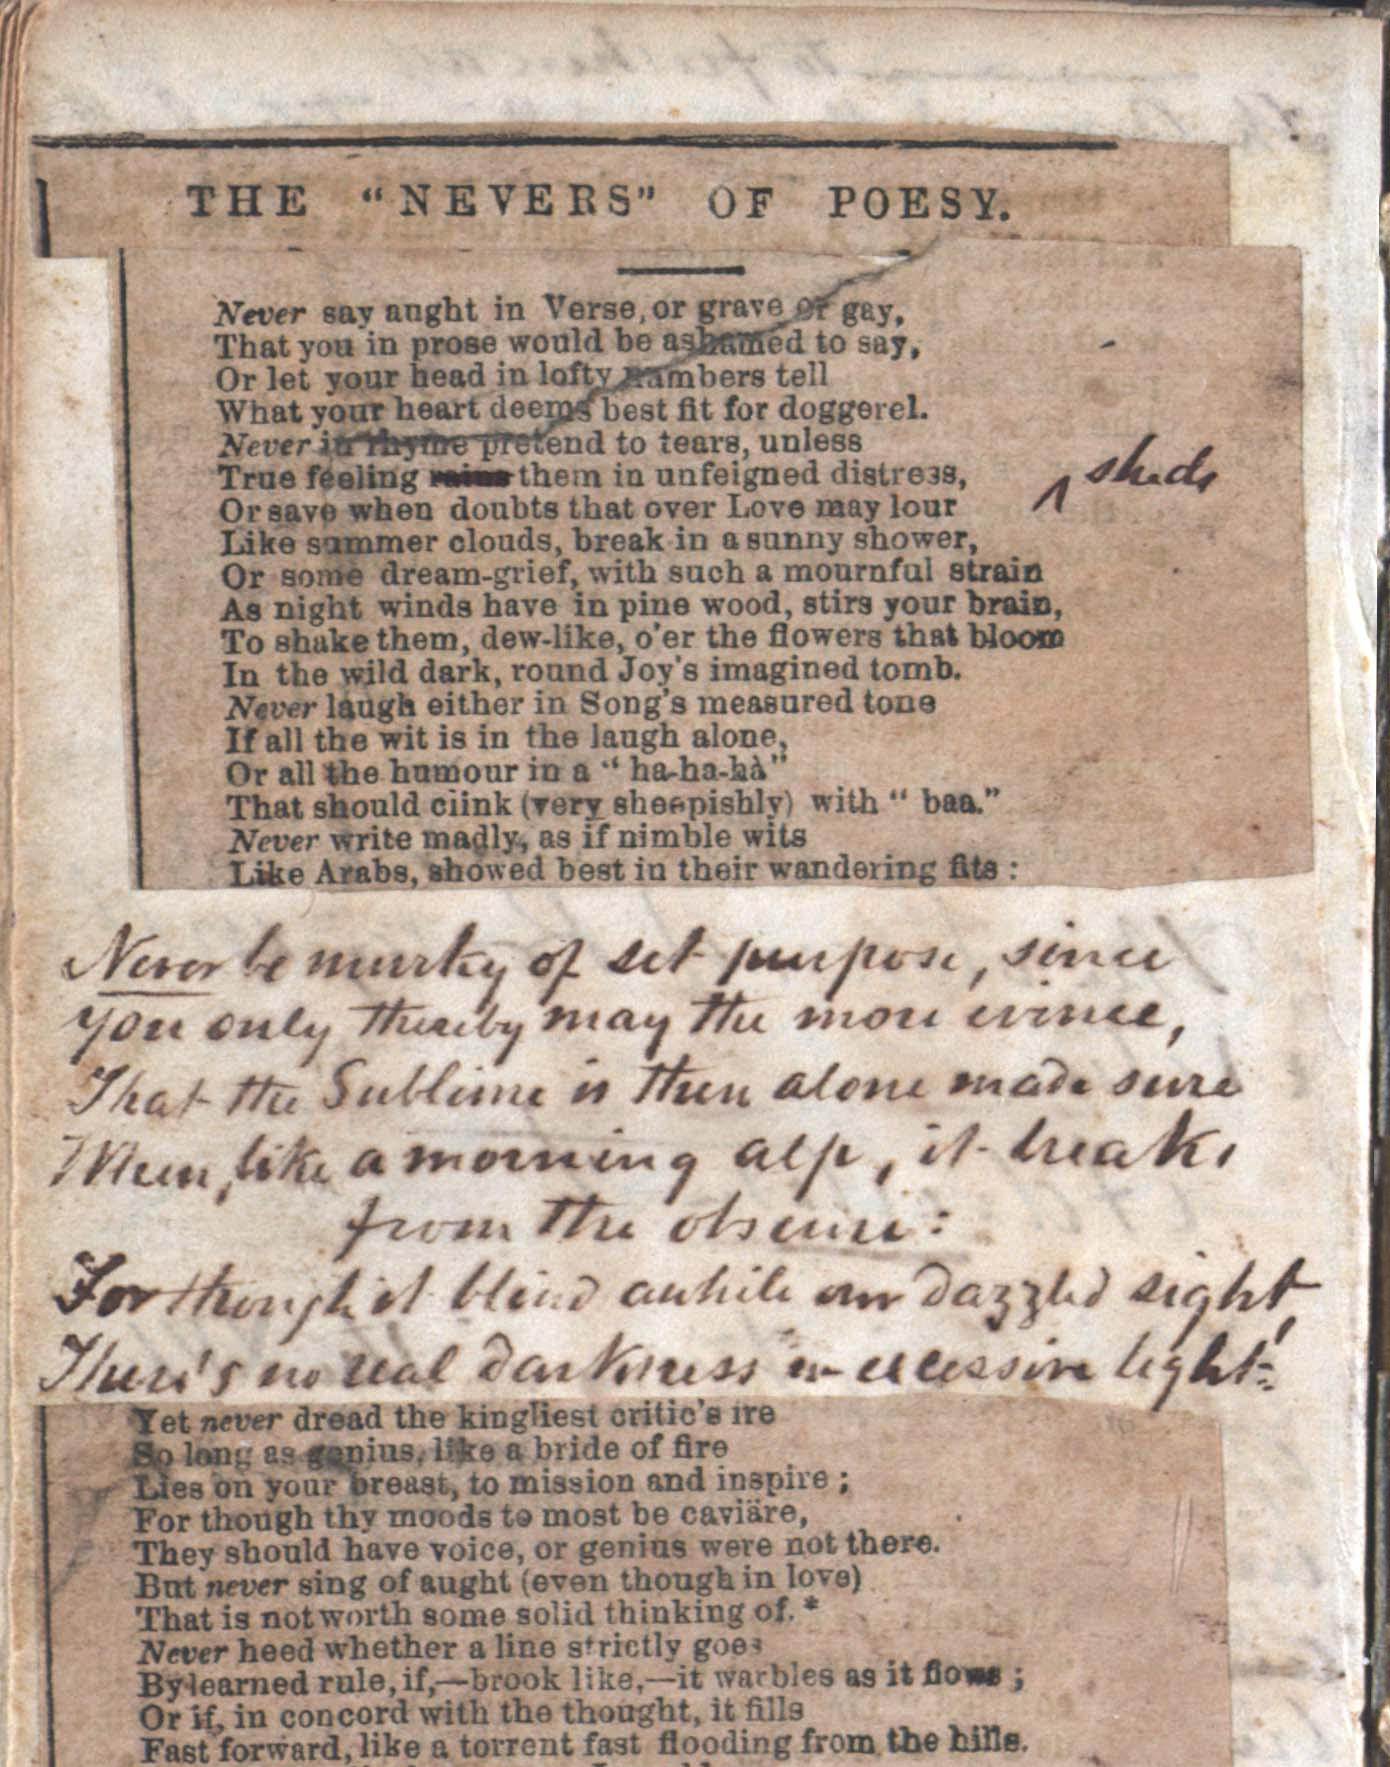 THE "NEVERS" OF POESY.
Never say aught in Verse, or grave or gay,
That you in prose would be ashamed to say,
Or let your head in lofty numbers tell
What your heart deems best fit for doggerel.
Never in rhyme pretend to tears, unless
True feeling rains them in unfeigned distress,
^ sheds
Or save when doubts that over Love may lour
Like summer clouds, break in a sunny shower,
Or some dream-grief, with such a mournful strain
As night winds have in pine wood, stirs your brain,
To shake them, dew-like, o'er the flowers that bloom
In the wild dark, round Joy's imagined tomb.
Never laugh either in Song's measured tone
If all the wit is in the laugh alone,
Or all the humour in a "ha-ha-hà"
That should clink (very sheepishly) with "baa."
Never write madly, as if nimble wits
Like Arabs, showed best in their wandering fits:
Never be murky of set purpose, since
You only thereby may the more evince,
That the Sublime is then alone made sure
When, like a morning alp, it breaks
from the obscure:
For though it blind awhile our dazzled sight,
There's no real darkness in excessive light:
Yet never dread the kingliest critic's ire
So long as genius, like a bride of fire
Lies on your breast, to mission and inspire;
For though thy moods to most be caviäre,
They should have voice, or genius were not there.
But never sing of aught (even though in love)
That is not worth some solid thinking of.*
Never heed whether a line strictly goes
By learned rule, if,—brook like,—it warbles as it flows;
Or if, in concord with the thought, it fills
Fast forward, like a torrent fast flooding from the hills.